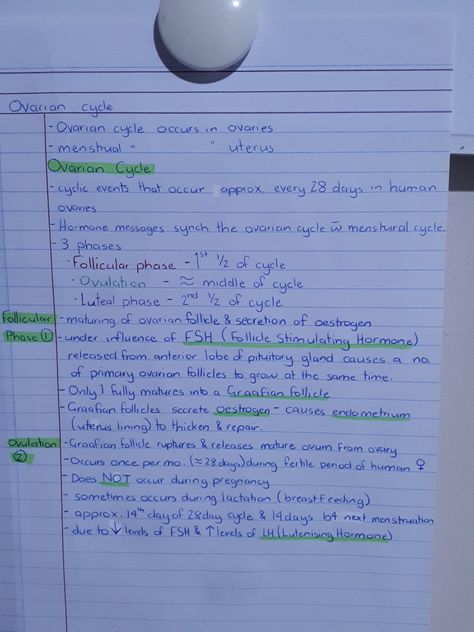 Ovarian cycle
- Ovarian cycle occurs in ovaries
- menstrual " " uterus
Ovarian Cycle
- cyclic events that occur approx. every 28 days in human
ovaries
- Hormone messages synch the ovarian cycle w̄ menstural cycle.
- 3 phases
· Follicular phase - 1st 1/2 of cycle
· Ovulation - ≈ middle of cycle
· Luteal phase - 2nd 1/2 of cycle
Follicular - maturing of ovarian follicle & secretion of oestrogen
Phase ① - under influence of FSH (Follicle Stimulating Hormone)
released from anterior lobe of pituitary gland causes a no.
of primary ovarian follicles to grow at the same time.
- Only 1 fully matures into a Graafian follicle
- Graafian follicles secrete oestrogen - causes endometrium
(uterus lining) to thicken & repair.
Ovulation - Graafian follicle ruptures & releases mature ovum from ovary
② - Occurs once per mo. (≈28days) during fertile period of human ♀
- Does NOT occur during pregnancy
- sometimes occurs during lactation (breastfeeding)
- approx. 14th day of 28day cycle & 14days b4 next menstruation
- due to ↓ levels of FSH & ↑ levels of LH (Lutenising Hormone)